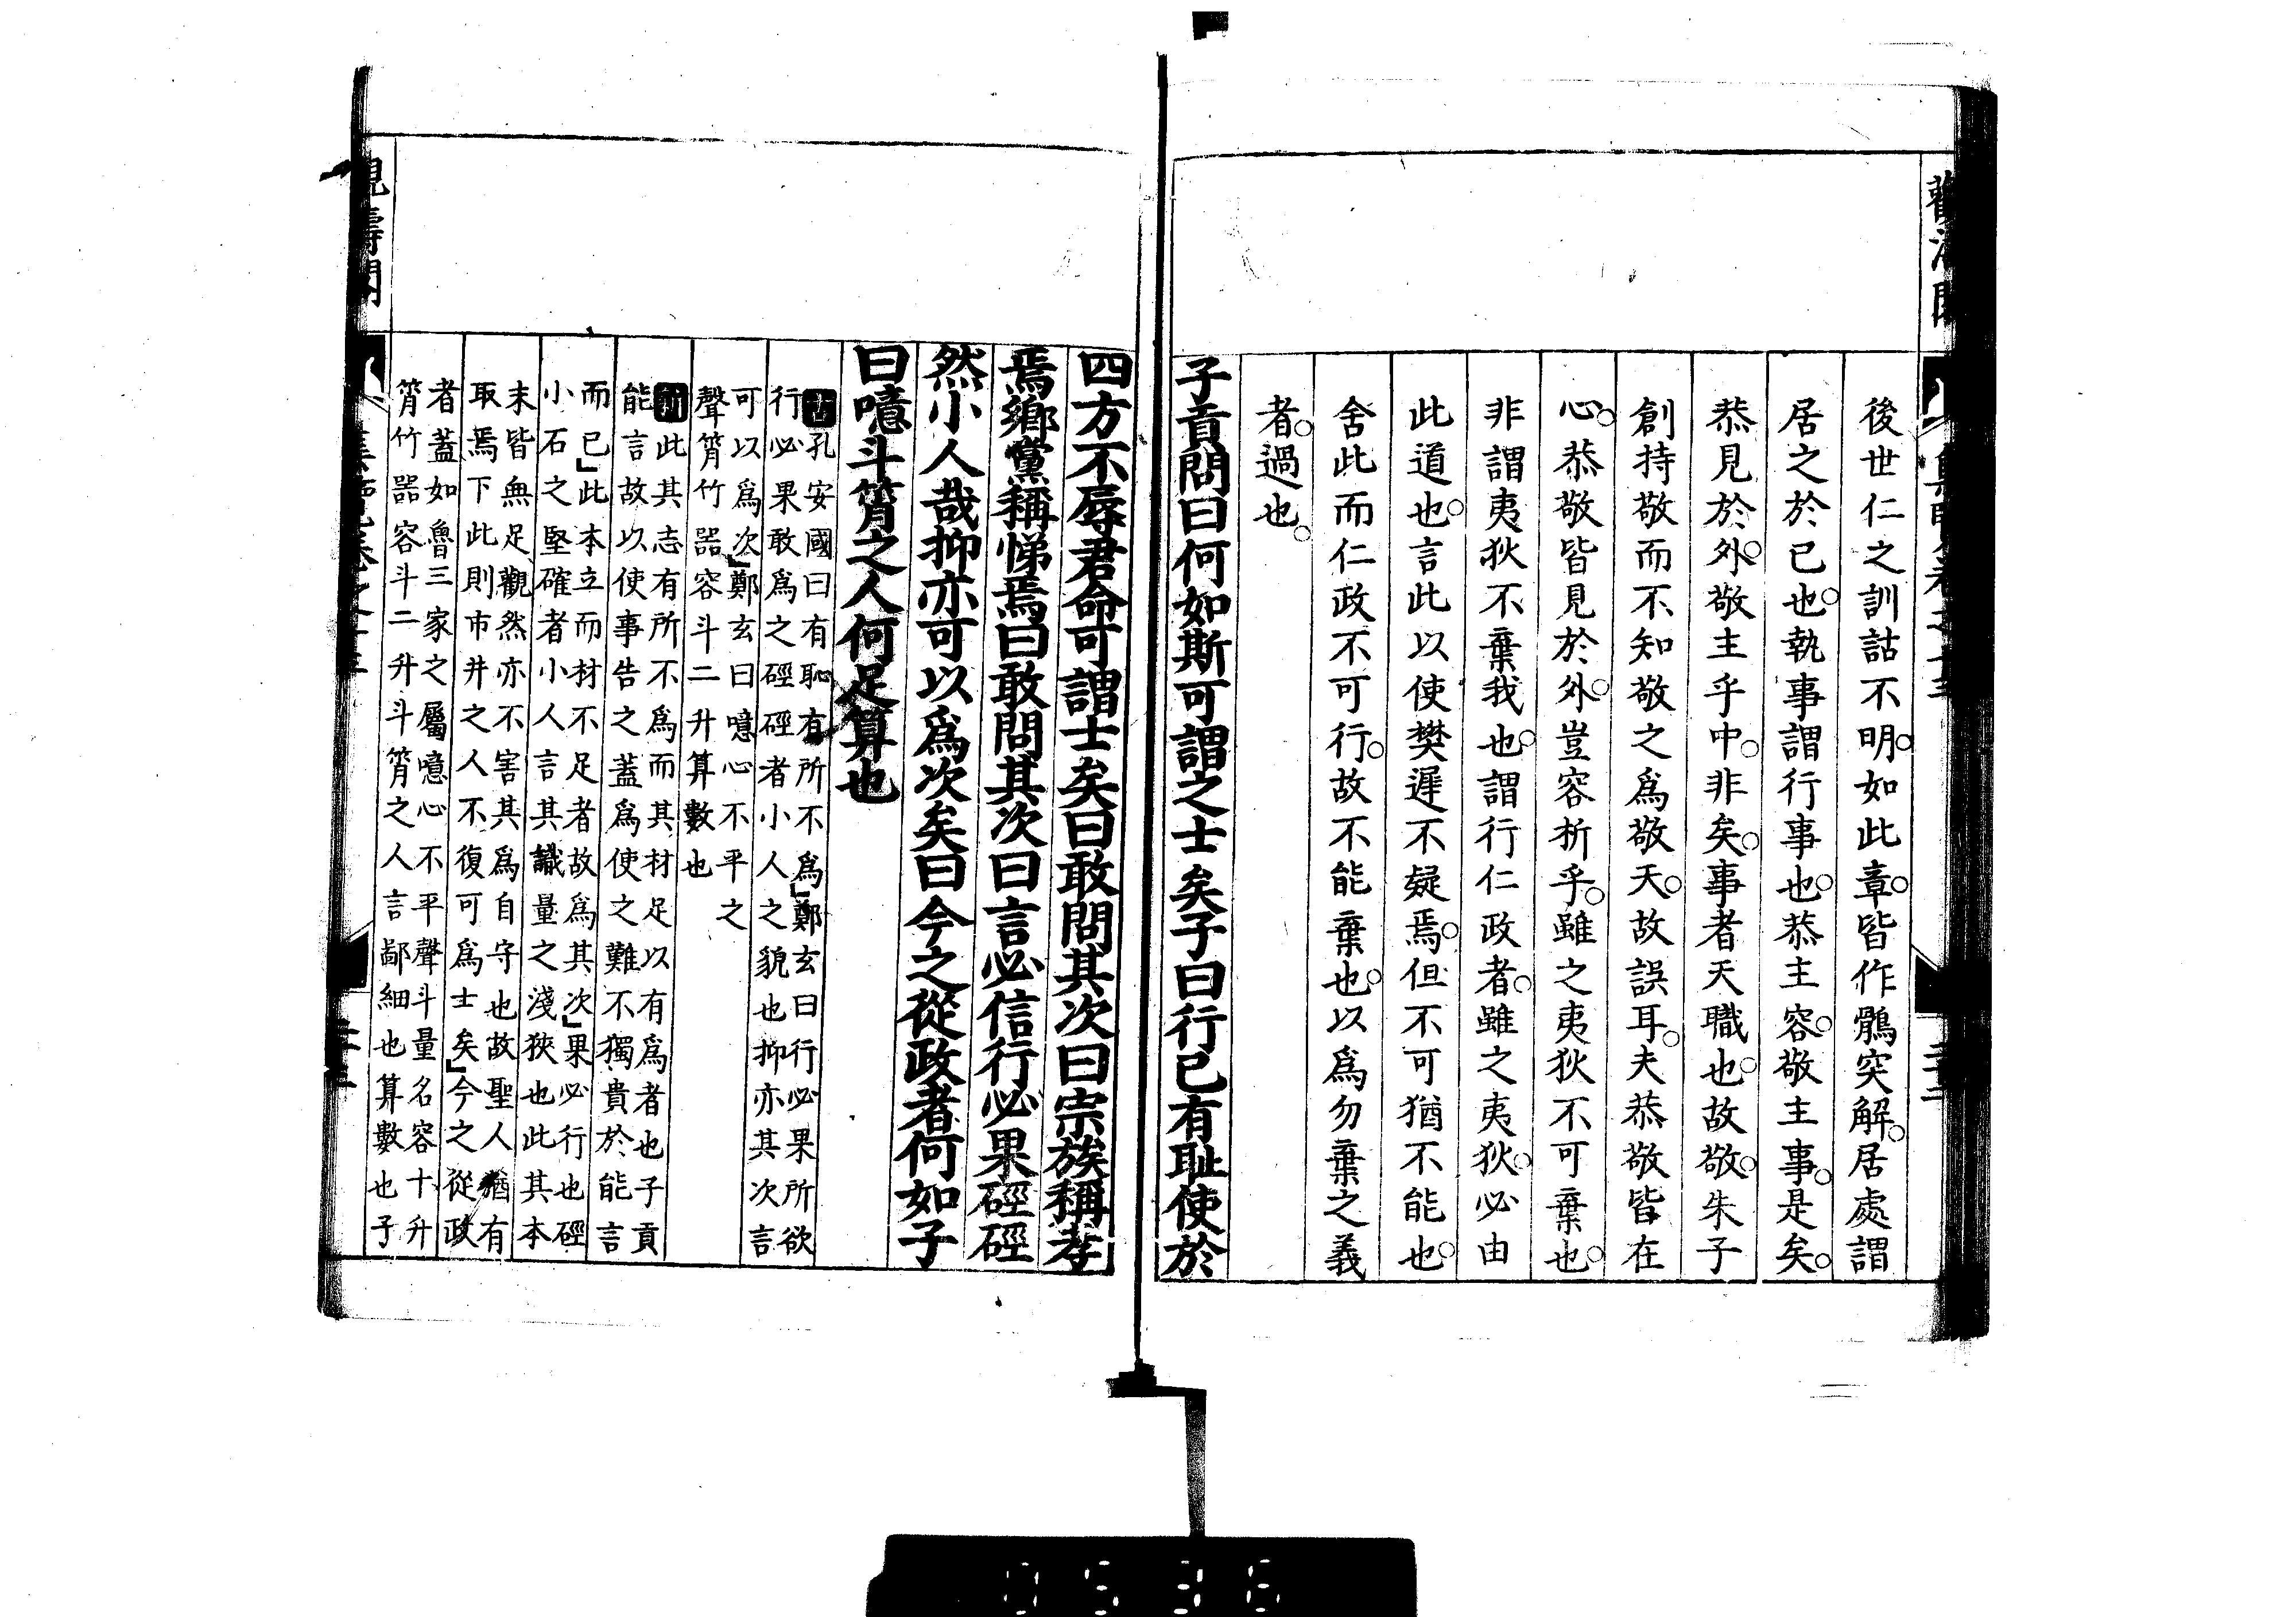 後世仁之訓詁不明如此章皆作鶻突解居處謂
居之於己也執事謂行事也恭主容敬主事是矣
恭見於外敬主乎中非矣事者天職也故敬朱子
創持敬而不知敬之爲敬天故誤耳夫恭敬皆在
心恭敬皆見於外豈容析乎雖之夷狄不可棄也
非謂夷狄不棄我也謂行仁政者雖之夷狄必由
此道也言此以使樊遲不疑焉但不可猶不能也
舍此而仁政不可行故不能棄也以爲勿棄之義
者過也
子貢問曰何如斯可謂之士矣子曰行己有耻使於
四方不辱君命可謂士矣曰敢問其次曰宗族稱孝
焉鄉黨稱悌焉曰敢問其次曰言必信行必果硜硜
然小人哉抑亦可以爲次矣曰今之從政者何如子
曰噫斗筲之人何足算也
古孔安國曰有恥有所不爲鄭玄曰行必果所欲
行必果敢爲之硜硜者小人之貌也抑亦其次言
可以爲次鄭玄曰噫心不平之
聲筲竹器容斗二升算數也
此其志有所不爲而其材足以有爲者也子貢
能言故以使事告之蓋爲使之難不獨貴於能言
而已此本立而材不足者故爲其次果必行也硜
小石之堅確者小人言其識量之淺狹也此其本
末皆無足觀然亦不害其爲自守也故聖人猶有
取焉下此則市井之人不復可爲士矣今之從政
者蓋如魯三家之屬噫心不平聲斗量名容十升
筲竹器容斗二升斗筲之人言鄙細也算數也子
0536